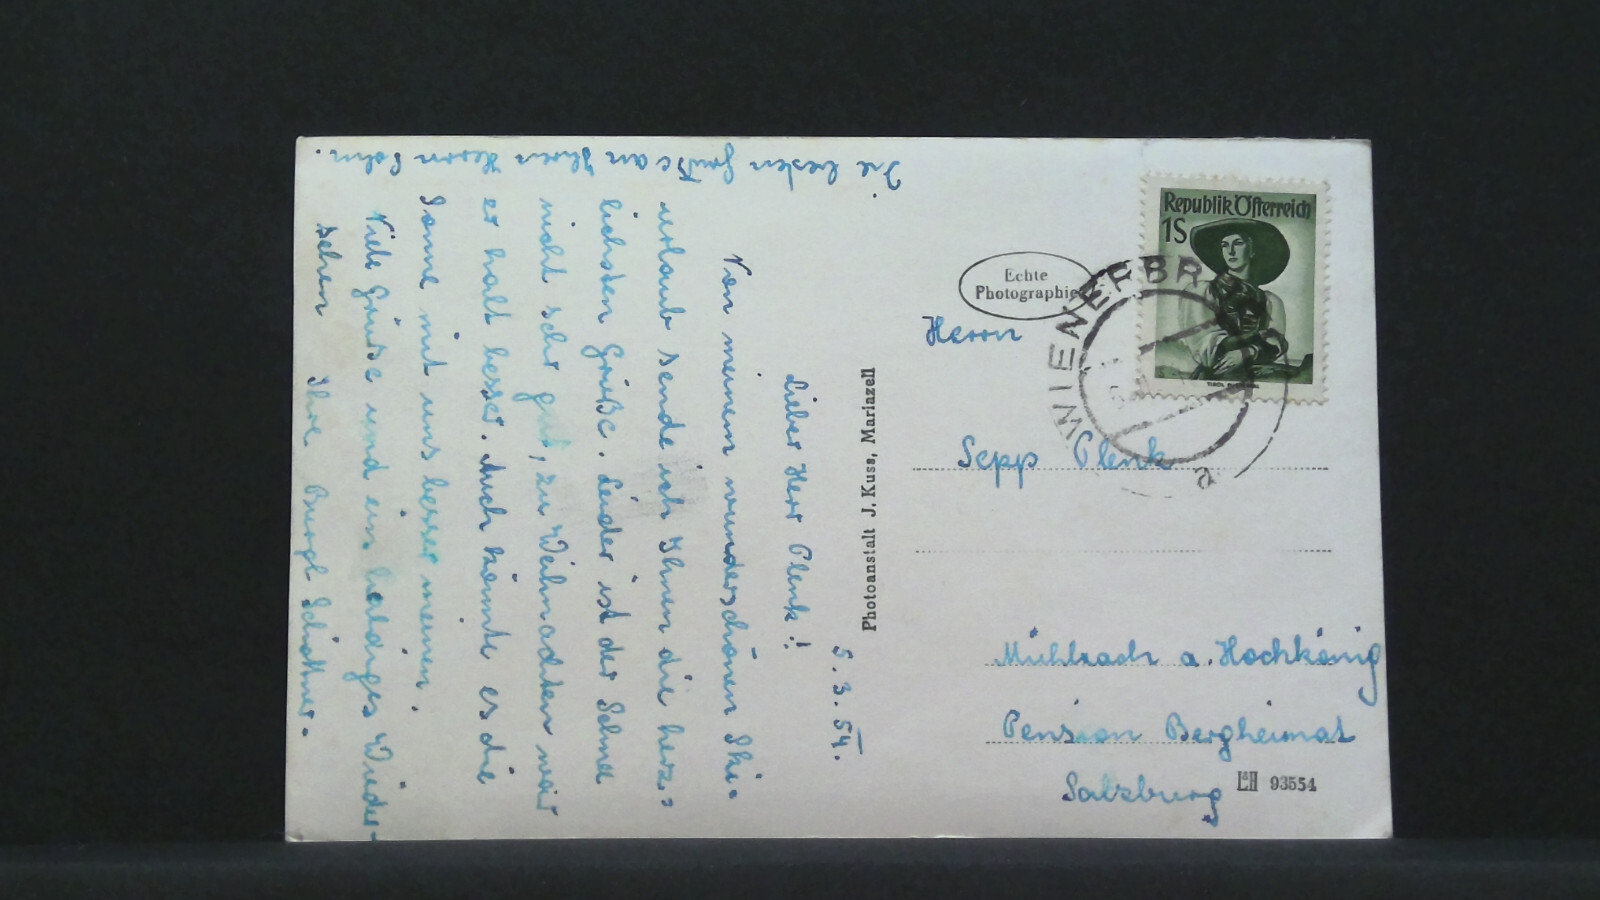 5.3.54.
Lieber Herr Plenk!
Von meinem wunderschönen Ski-
urlaub sende ich Ihnen die herz-
lichsten Grüße. Leider ist der Schnee
nicht sehr gut, zu Weihnachten war
er halt besser. Auch könnte es die
Sonne mit uns besser meinen.
Viele Grüße und ein baldiges Wieder-
sehen Ihre Burgl Schöttner.
Die besten Grüße an Ihren Herrn Sohn.
Photoanstalt J. Kuss, Mariazell
Echte
Photographie
Republik Österreich
1S
WIENERBR
a
Herrn
Sepp Plenk
Mühlbach a. Hochkönig
Pension Bergheimat
Salzburg
L&H 93554